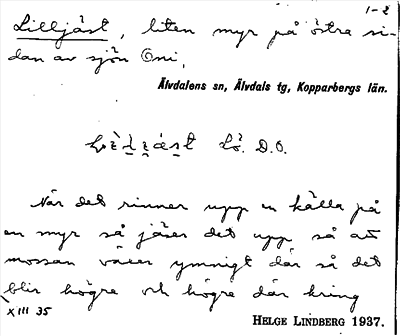 1-2
Lilljäst, liten myr på östra si-
dan av sjön Oni,
Älvdalens sn, Älvdals tg, Kopparbergs län.
Lö. D.O.
När det rinner upp en källa på
en myr så jäser det upp så att
mossan växer ymnigt där så det
blir högre och högre där kring
X III 35
HELGE LINDBERG 1937.